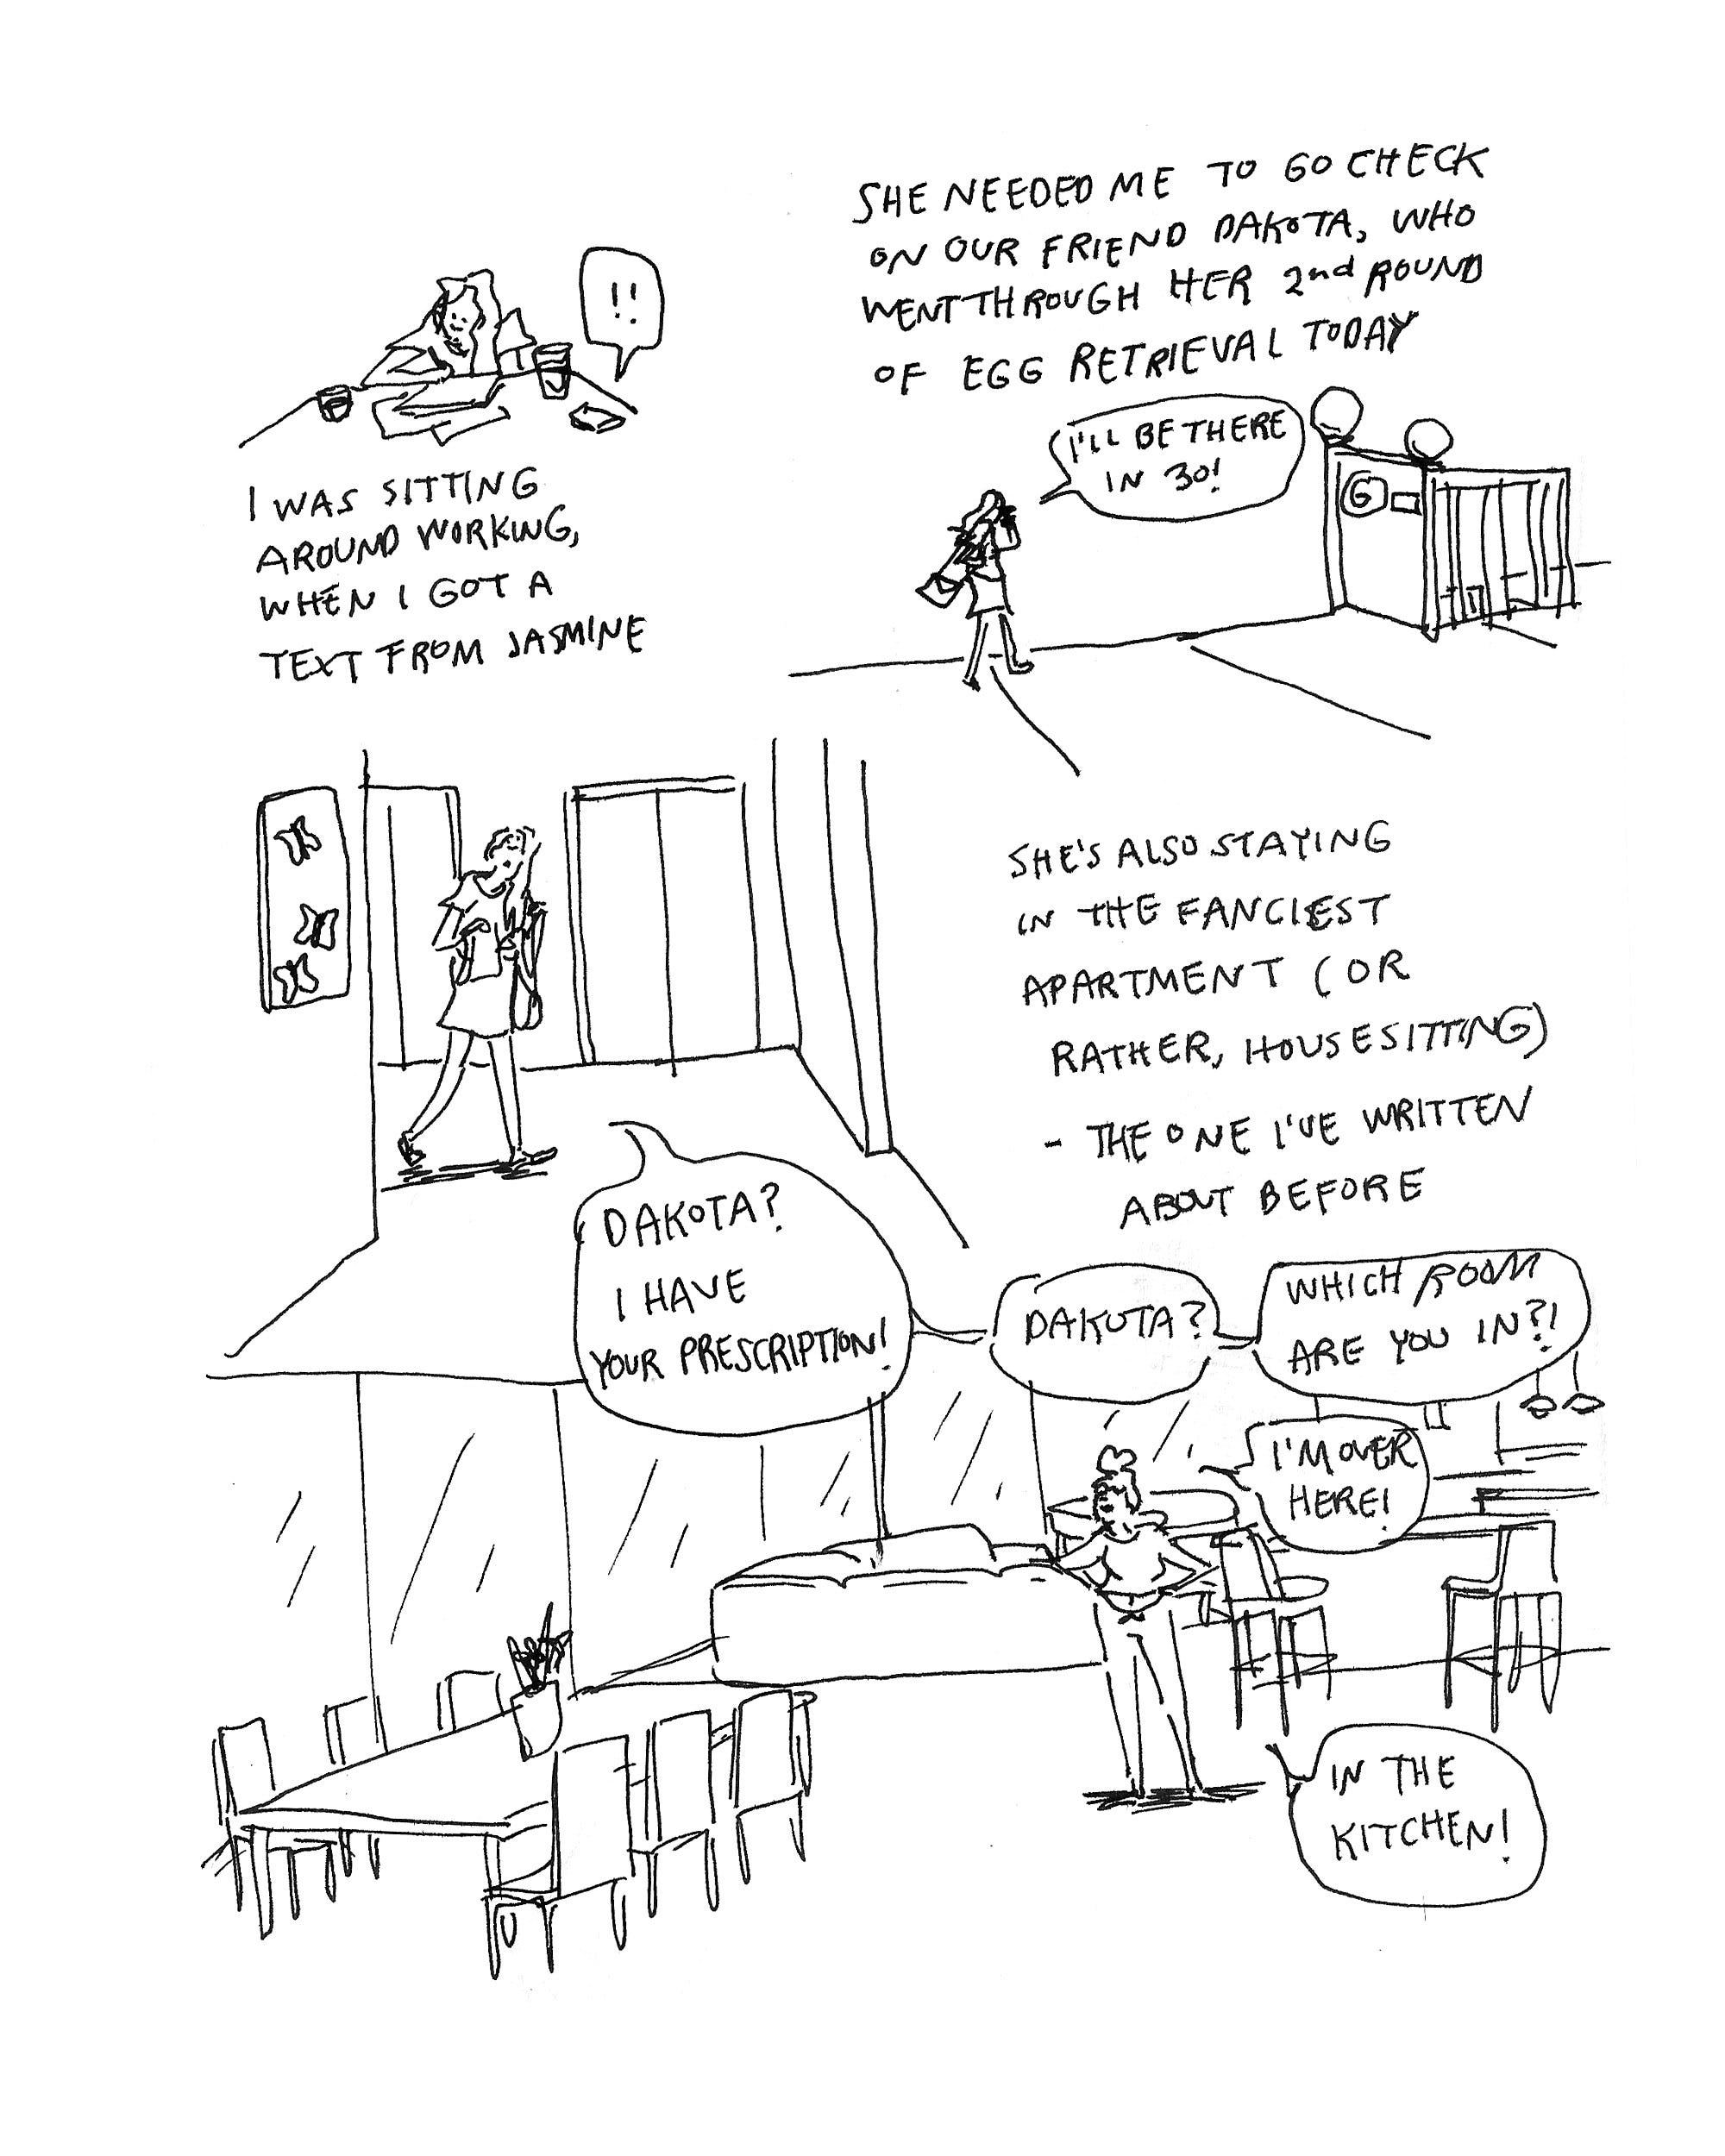 !!
I WAS SITTING
AROUND WORKING,
WHEN I GOT A
TEXT FROM JASMINE
SHE NEEDED ME TO GO CHECK
ON OUR FRIEND DAKOTA, WHO
WENT THROUGH HER 2nd ROUND
OF EGG RETRIEVAL TODAY
I'LL BE THERE
IN 30!
G
SHE'S ALSO STAYING
IN THE FANCIEST
APARTMENT (OR
RATHER, HOUSESITTING)
- THE ONE I'VE WRITTEN
ABOUT BEFORE
DAKOTA?
I HAVE
YOUR PRESCRIPTION!
DAKOTA?
WHICH ROOM
ARE YOU IN?!
I'M OVER
HERE!
IN THE
KITCHEN!